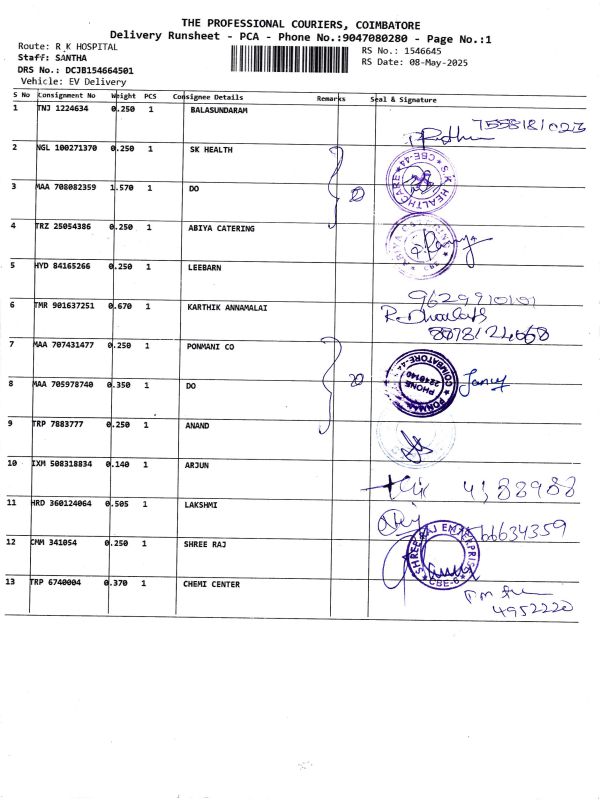 THE PROFESSIONAL COURIERS, COIMBATORE
Delivery Runsheet - PCA - Phone No.:9047080280 - Page No.:1
Route: R K HOSPITAL
Staff: SANTHA
DRS No.: DCJB154664501
Vehicle: EV Delivery
RS No.: 1546645
RS Date: 08-May-2025
S No Consignment No Weight PCS Consignee Details Remarks Seal & Signature
1 TNJ 1224634 0.250 1 BALASUNDARAM
7558181023
2 NGL 100271370 0.250 1 SK HEALTH
S.K HEALTHCARE CBE-44
3 MAA 708082359 1.570 1 DO
4 TRZ 25054386 0.250 1 ABIYA CATERING
5 HYD 84165266 0.250 1 LEEBARN
9629910101
6 TMR 901637251 0.670 1 KARTHIK ANNAMALAI
8878124668
7 MAA 707431477 0.250 1 PONMANI CO
COIMBATORE-44 PHONE 2218140
8 MAA 705978740 0.350 1 DO
Jancy
9 TRP 7883777 0.250 1 ANAND
10 IXM 508318834 0.140 1 ARJUN
4188988
11 HRD 360124064 0.505 1 LAKSHMI
66634359
12 CMM 341054 0.250 1 SHREE RAJ
SHREE RAJ ENTERPRISE CBE-6
13 TRP 6740004 0.370 1 CHEMI CENTER
4952220